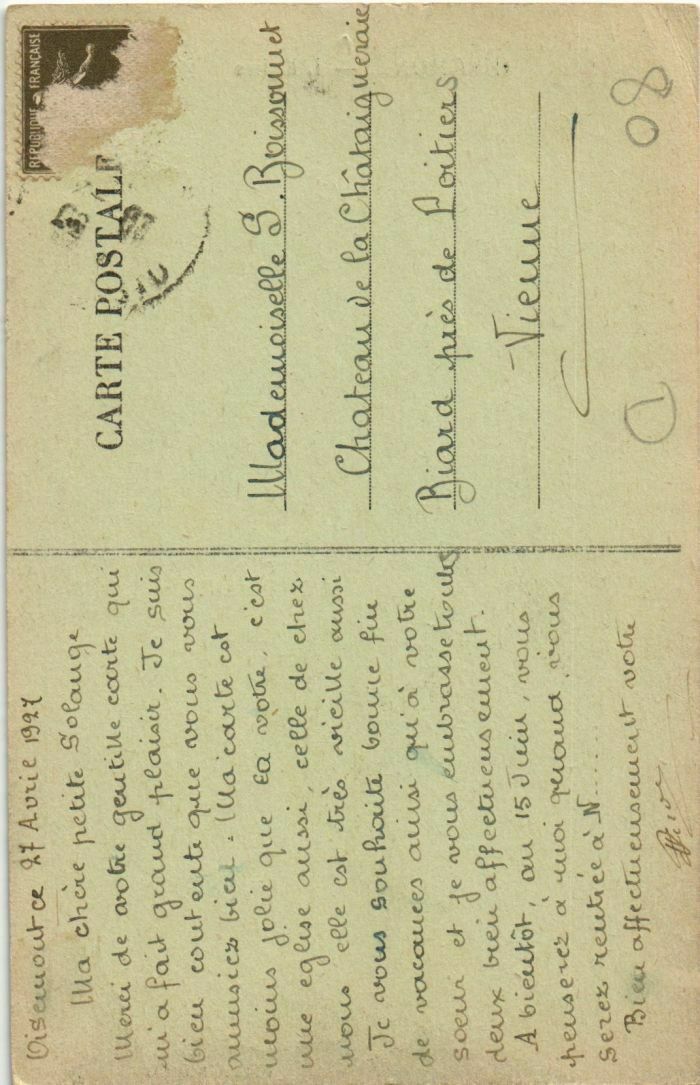 Oisemont ce 27 Avril 1927
Ma chère petite Solange
Merci de votre gentille carte qui
m'a fait grand plaisir. Je suis
bien contente que vous vous
amusiez bien. Ma carte est
moins jolie que la votre, c'est
une eglise aussi, celle de chez
nous elle est très vieille aussi
Je vous souhaite bonne fin
de vacances ainsi qu'à votre
soeur et je vous embrasse toutes
deux bien affectueusement.
A bientôt, au 15 Juin, vous
penserez à moi quand vous
serez rentrée à N......
Bien affectueusement votre
CARTE POSTALE
REPUBLIQUE FRANCAISE
Mademoiselle S. Boissonnet
Chateau de la Châtaigneraie
Biard près de Poitiers
Vienne
08